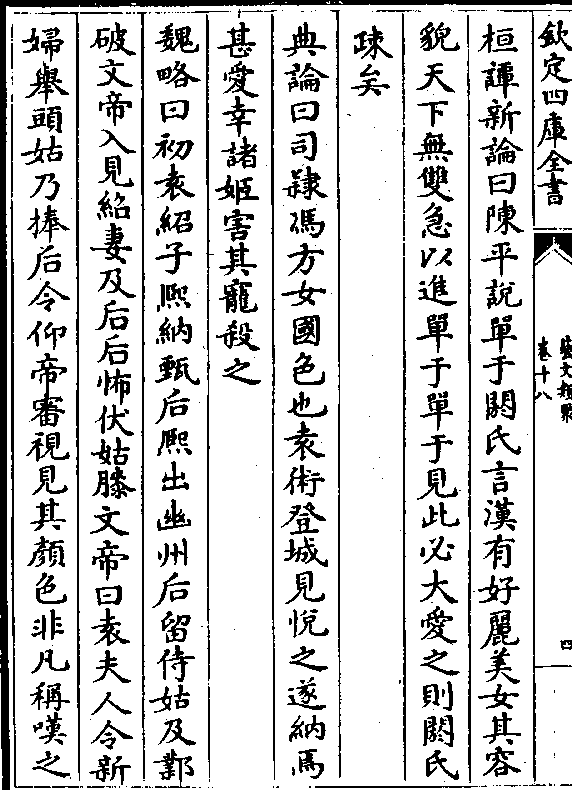 欽定四庫全書
藝文類聚
卷十八
四
桓譚新論曰陳平說單于閼氏言漢有好麗美女其容
貌天下無雙急以進單于單于見此必大愛之則閼氏
疎矣
典論曰司隸馮方女國色也袁術登城見悅之遂納焉
甚愛幸諸姬害其寵殺之
魏略曰初袁紹子熈納甄后熈出幽州后留侍姑及鄴
破文帝入見紹妻及后后怖伏姑膝文帝曰袁夫人令新
婦舉頭姑乃捧后令仰帝審視見其顏色非凡稱嘆之